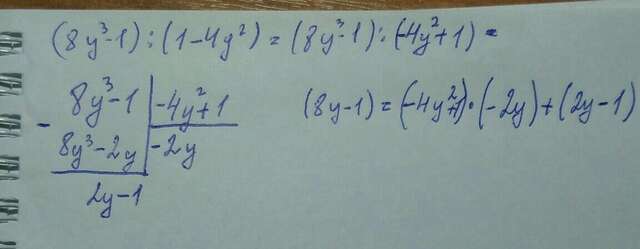 (8y³-1):(1-4y²)=(8y³-1):(-4y²+1)=
8y³-1 | -4y²+1
- 8y³-2y | -2y
2y-1
(8y-1)=(-4y²+1)·(-2y)+(2y-1)